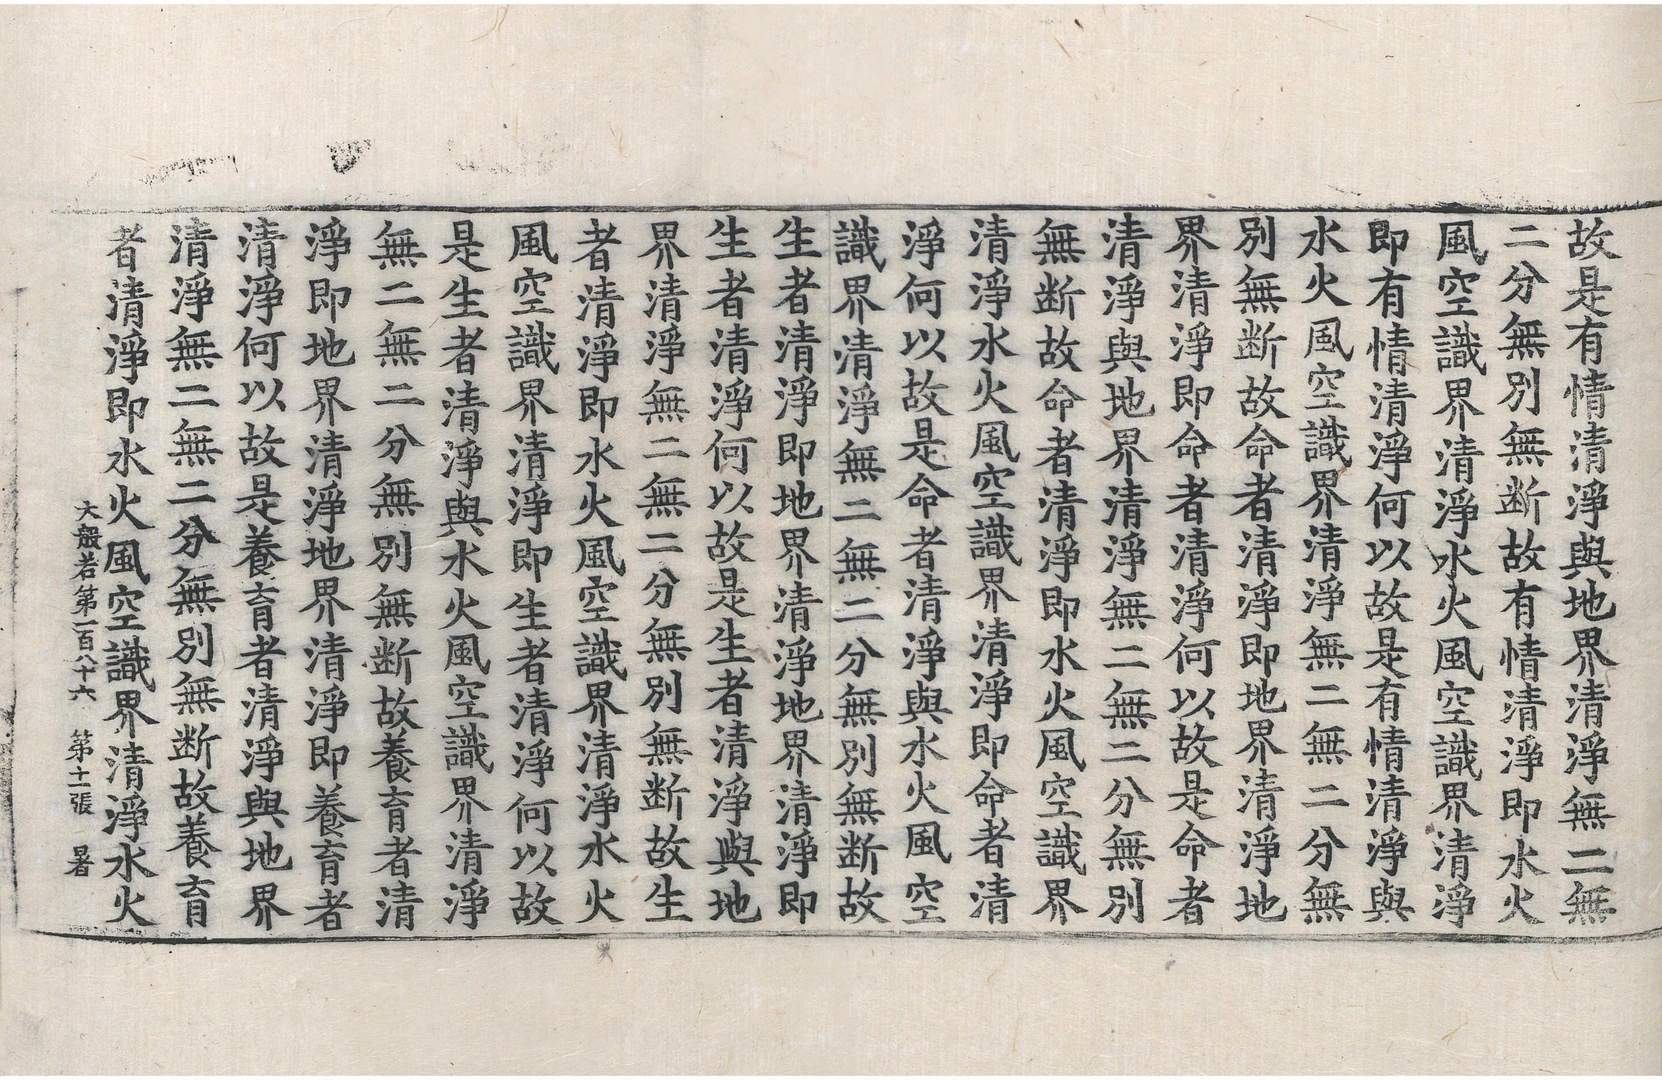 故是有情清淨與地界清淨無二無
二分無別無断故有情清淨即水火
風空識界清淨水火風空識界清淨
即有情清淨何以故是有情清淨與
水火風空識界清淨無二無二分無
別無断故命者清淨即地界清淨地
界清淨即命者清淨何以故是命者
清淨與地界清淨無二無二分無別
無断故命者清淨即水火風空識界
清淨水火風空識界清淨即命者清
淨何以故是命者清淨與水火風空
識界清淨無二無二分無別無断故
生者清淨即地界清淨地界清淨即
生者清淨何以故是生者清淨與地
界清淨無二無二分無別無断故生
者清淨即水火風空識界清淨水火
風空識界清淨即生者清淨何以故
是生者清淨與水火風空識界清淨
無二無二分無別無断故養育者清
淨即地界清淨地界清淨即養育者
清淨何以故是養育者清淨與地界
清淨無二無二分無別無断故養育
者清淨即水火風空識界清淨水火
大般若第一百八十六 第十一張 暑